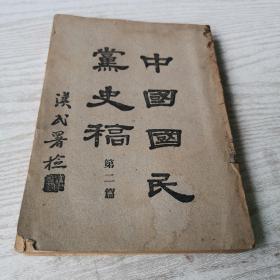 中國國民
黨史稿
第二篇
漢民署檢